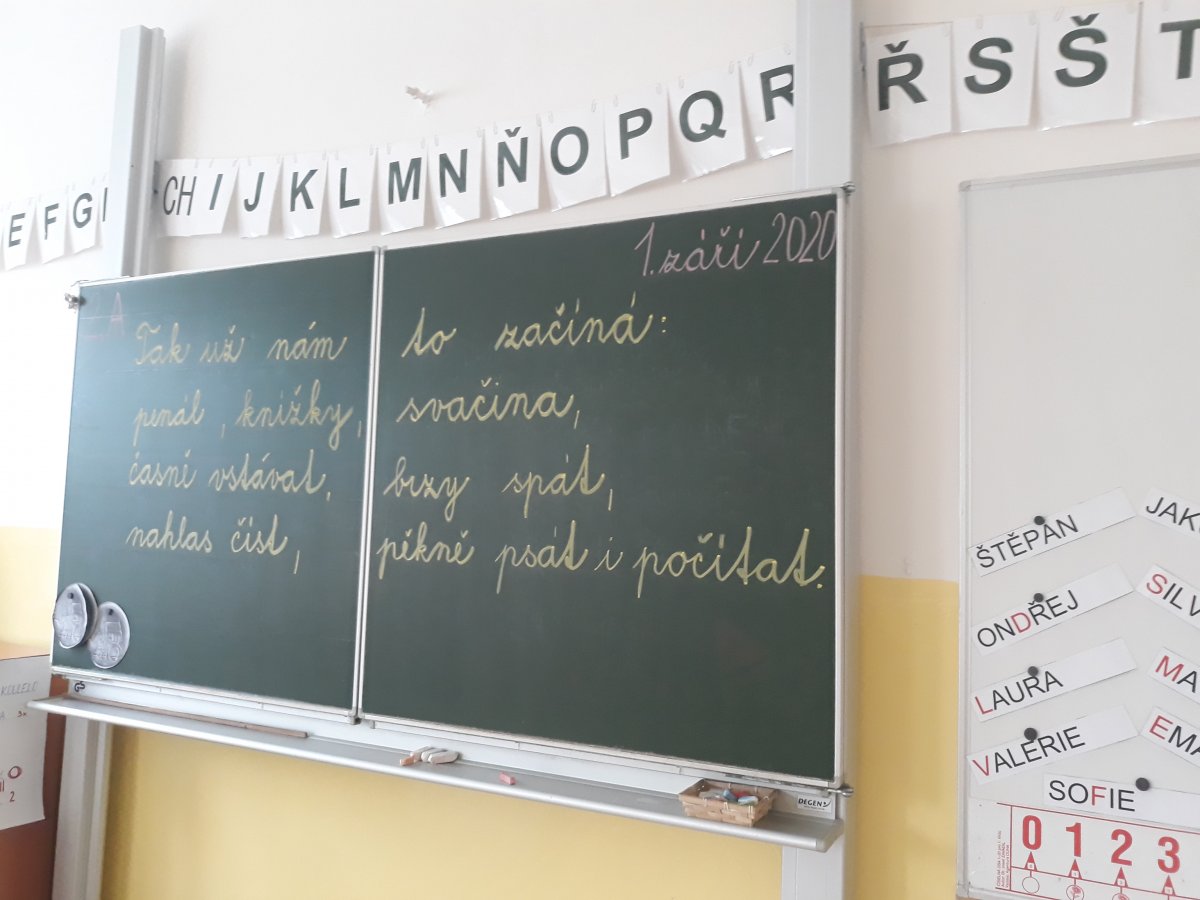 E F G
CH I J K L M N Ň O P Q R Ř S Š T
1. září 2020
A
Tak už nám to začíná:
penál, knížky, svačina,
časně vstávat, brzy spát,
nahlas číst, pěkně psát i počítat.
ŠTĚPÁN
ONDŘEJ
SILV
LAURA
MA
VALÉRIE
EMA
SOFIE
0 1 2 3
DEGEN